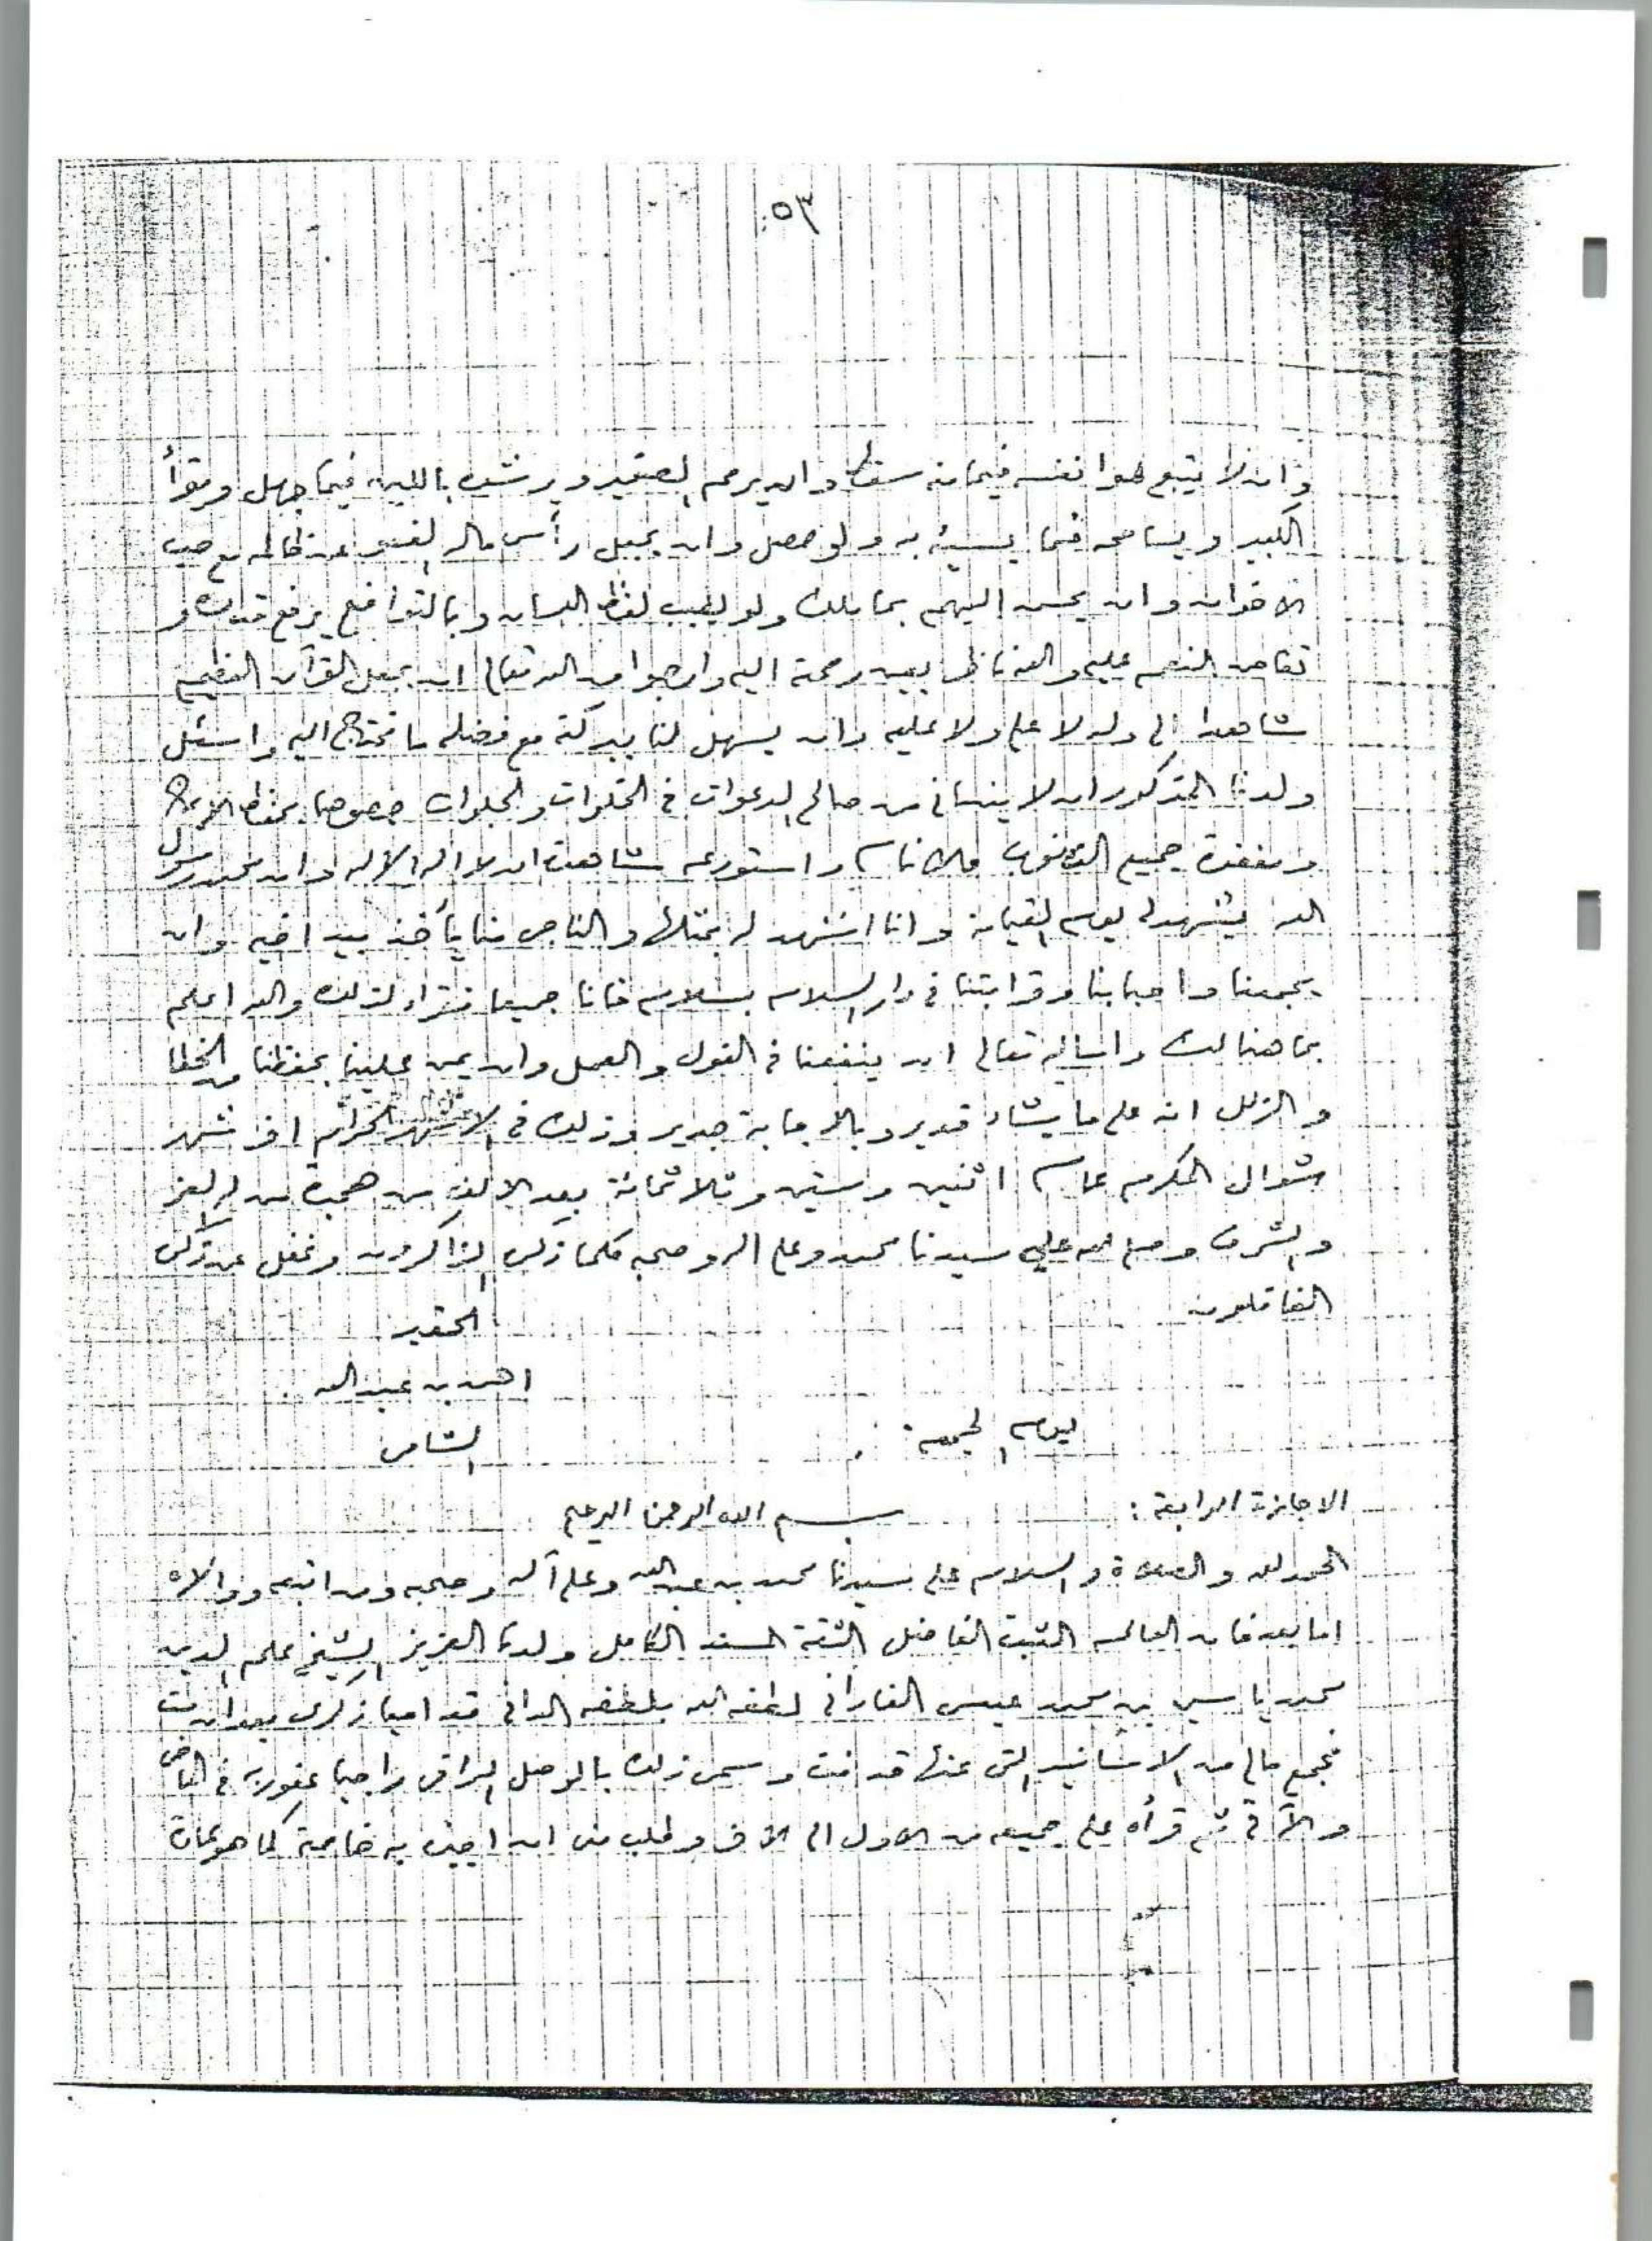 ٥٣
وان لا يتبع هوا نفسه فيما منه سقط وان يرحم الصغير ويرشده باللين فيما جهل ويقرأ
الكبير ويسامحه فيما يسيئ به ولو حصل وان يجعل رأس ماله العفو عن ظالمه مع حب
الاخوان وان يحسن اليهم بما ملك ولو بطيب لفظ اللسان وبالتواضع يرفع قدرك و
تفاض النعم عليه والله ناظر بعين رحمة اليه وارجوا من الله تعالى ان يجعل القرآن العظيم
شاهدا لي وله لا علي ولا عليه وان يسهل لنا ببركته مع فضله ما نحتاج اليه واسئل
ولدنا المذكور ان لا ينساني من صالح الدعوات في الخلوات والجلوات خصوصا بحفظ الايمان
ومغفرة جميع الذنوب والاثام واستودعه شاهدة ان لا اله الا الله وان محمد رسول
الله يشهد لي يوم القيامة وانا اشهد له بمثلها والناجي منا يأخذ بيد اخيه وان
يجمعنا واحبابنا وقرابتنا في دار السلام بسلام فانا جميعا فقراء لذلك والله اعلم
بما هنالك واساله تعالى ان ينفعنا في القول والعمل وان يمن علينا بحفظنا من الخطا
والزلل انه على ما يشاء قدير وبالاجابة جدير وذلك في الاشهر الحرام اخر شهر
شوال المكرم عام اثنين وستين وثلاثمائة بعد الالف من هجرة من له العز
والشرف وصلى الله على سيدنا محمد وعلى اله وصحبه كلما ذكر الذاكرون وغفل عن ذكره
الغافلون
الحقير
احمد بن عبد الله
يوم الجمعة الشامي
الاجازة الرابعة : بسم الله الرحمن الرحيم
الحمد لله والصلاة والسلام على سيدنا محمد بن عبد الله وعلى آله وصحبه ومن اتبعه ووالاه
اما بعد فان العالم الثبت الفاضل الثقة المسند الكامل ولدنا العزيز الشيخ علم الدين
محمد ياسين بن محمد عيسى الفاداني لطفه الله بلطفه الداني قد احيا ذكري بعد ان مت
فجمع مالي من الاسانيد التي عنها قد فت وسمى ذلك بالوصل الراقي راجيا عفو ربه في الماضي
والآتي ثم قرأه علي جميعه من الاول الى الاخر وطلب مني ان اجيزه به خاصة كما هو عادة